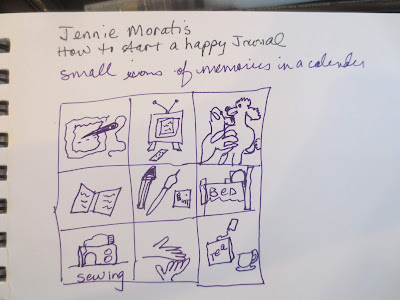 Jennie Moratis
How to start a happy Journal
small icons of memories in a calender
BED
sewing
TEA